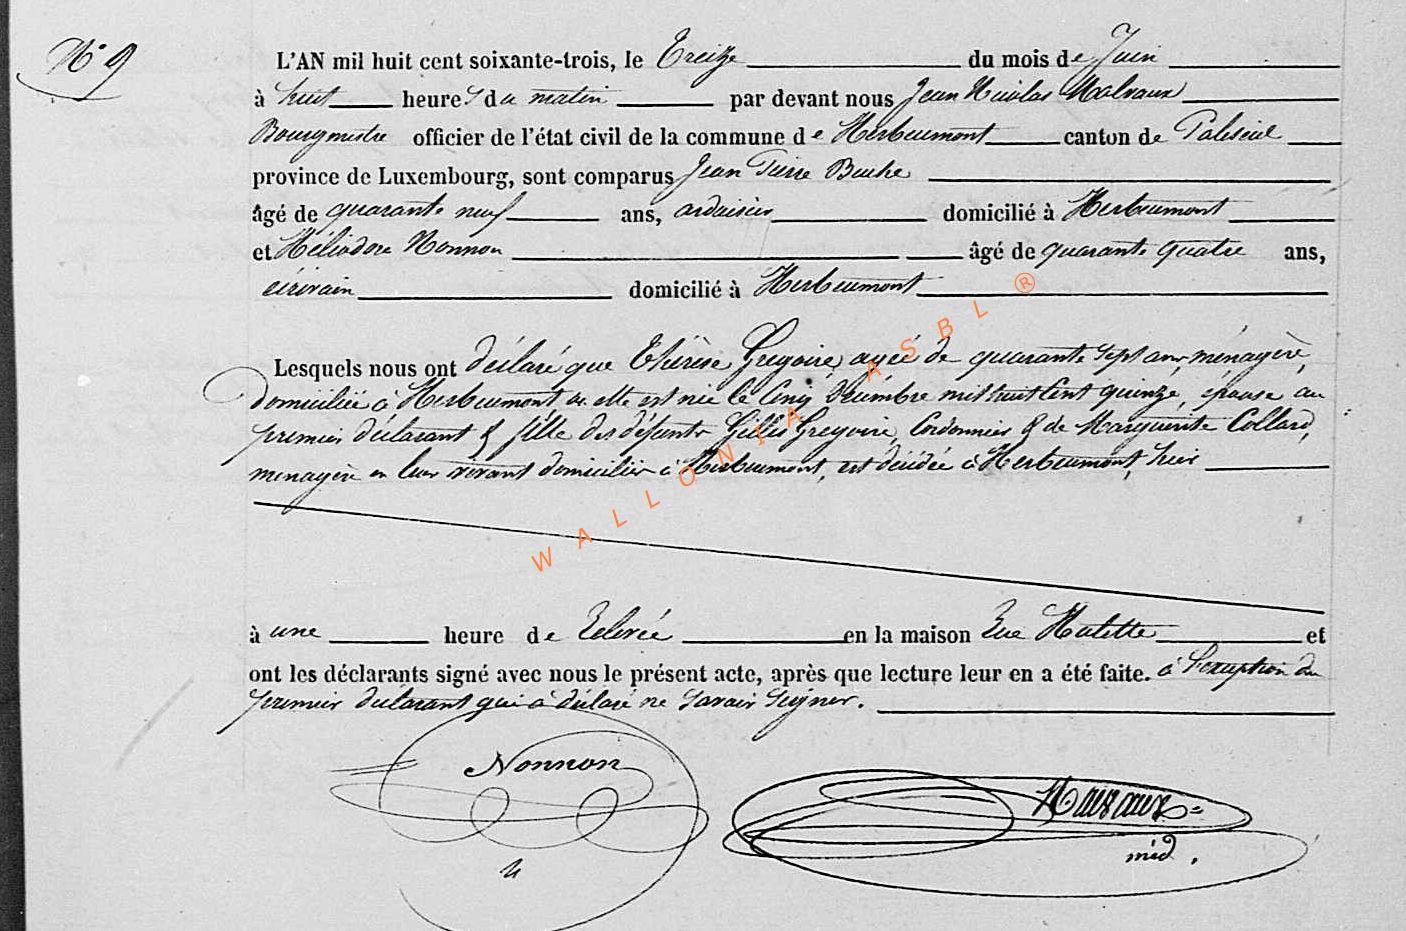 N° 9
L'AN mil huit cent soixante-trois, le Treize du mois de Juin
à huit heures du matin par devant nous Jean Nicolas Malvaux
Bourgmestre officier de l'état civil de la commune de Herbeumont canton de Paliseul
province de Luxembourg, sont comparus Jean Pierre Buche
âgé de quarante neuf ans, ardoisier domicilié à Herbeumont
et Héliodore Nonnon âgé de quarante quatre ans,
écrivain domicilié à Herbeumont
Lesquels nous ont déclaré que Thérèse Gregoire, agée de quarante sept ans, ménagère,
domiciliée à Herbeumont où elle est née le Cinq Décembre mil huit Cent quinze, épouse au
premier déclarant & fille des défunts Gilles Gregoire, Cordonnier & de Marguerite Collard,
menagère en leur vivant domiciliés à Herbeumont, est décédée à Herbeumont, hier
à une heure de Relevée en la maison Rue Hulette et
ont les déclarants signé avec nous le présent acte, après que lecture leur en a été faite. à l'exception du
premier déclarant qui a déclaré ne savoir signer.
Nonnon
Malvaux
méd.
WALLONIA ASBL ®